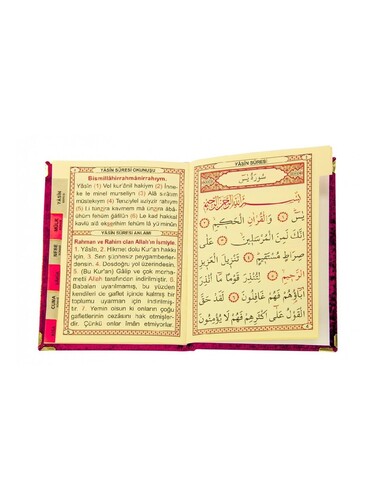 YÂSİN SÛRESİ OKUNUŞU
Bismillâhirrahmânirrahıym.
Yâsîn (1) Vel kur'ânil hakiym (2) İnne-
ke le minel murseliyn (3) Alâ sırâtım
müstekıym (4) Tenziylel aziyzir rahıym
(5) Li tünzira kavmen mâ ünzira âbâ-
ühüm fehüm ğafilûn (6) Le kad hakkal
kavlü alâ ekserihim fehüm lâ yü'minûn
YÂSİN SÛRESİ ANLAMI
Rahman ve Rahim olan Allah'ın ismiyle.
1. Yâsîn, 2. Hikmet dolu Kur'an'ı hakkı
için, 3. Sen şüphesiz peygamberler-
densin. 4. Dosdoğru yol üzerindesin.
5. (Bu Kur'an) Gâlip ve çok merha-
metli Allah tarafından indirilmiştir. 6.
Babaları uyarılmamış, bu yüzden
kendileri de gaflet içinde kalmış bir
toplumu uyarman için indirilmiş-
tir. 7. Yemin olsun ki onların çoğu
gafletlerinin cezasını hak etmişler-
dir. Çünkü onlar îmân etmiyorlar
YÂSİN
MÜLK
NEBE
CUMA
YÂSİN SÛRESİ
سُورَةُ يٰسٓ
بِسْمِ اللّٰهِ الرَّحْمٰنِ الرَّحِيمِ
يٰسٓ ﴿١﴾ وَالْقُرْاٰنِ الْحَكِيمِ ﴿٢﴾
اِنَّكَ لَمِنَ الْمُرْسَلِينَ ﴿٣﴾ عَلٰى
صِرَاطٍ مُسْتَقِيمٍ ﴿٤﴾ تَنْزِيلَ الْعَزِيزِ
الرَّحِيمِ ﴿٥﴾ لِتُنْذِرَ قَوْمًا مَٓا اُنْذِرَ
اٰبَٓاؤُ۬هُمْ فَهُمْ غَافِلُونَ ﴿٦﴾ لَقَدْ حَقَّ
الْقَوْلُ عَلٰٓى اَكْثَرِهِمْ فَهُمْ لَا يُؤْمِنُونَ